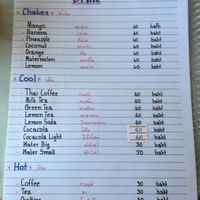 DRINK
* Chakes *
Mango 60 bath
Banana 60 baht
Pineapple 60 baht
Coconut 60 baht
Orange ส้ม 60 baht
Watermelon แตงโม 60 baht
Lemon มะนาว 60 baht
* Cool *
Thai Coffee กาแฟ 60 baht
Milk Tea ชานม 60 baht
Green Tea ชาเขียว 60 baht
Lemon Tea ชามะนาว 60 baht
Lemon Soda 60 baht
Cocacola โค้ก 40 baht
Cocacola Light 40 baht
Water Big 30 baht
Water Small 20 baht
* Hot * ร้อน
Coffee กาแฟ 30 baht
Tea ชา 30 baht
30 baht